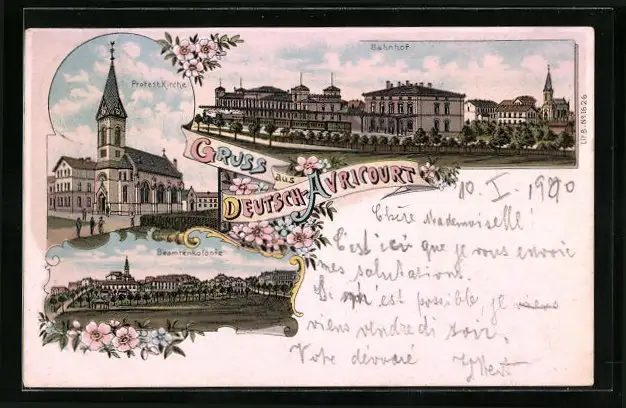 Bahnhof
Protest. Kirche
Lit. B. No 1626
GRUSS
aus
DEUTSCH-AVRICOURT
Beamtenkolonie
10. I. 1900
Chère Mademoiselle!
C'est ici que je vous envoie
mes salutations.
Si c'est possible, je viens
viens vendredi soir.
Votre dévoué